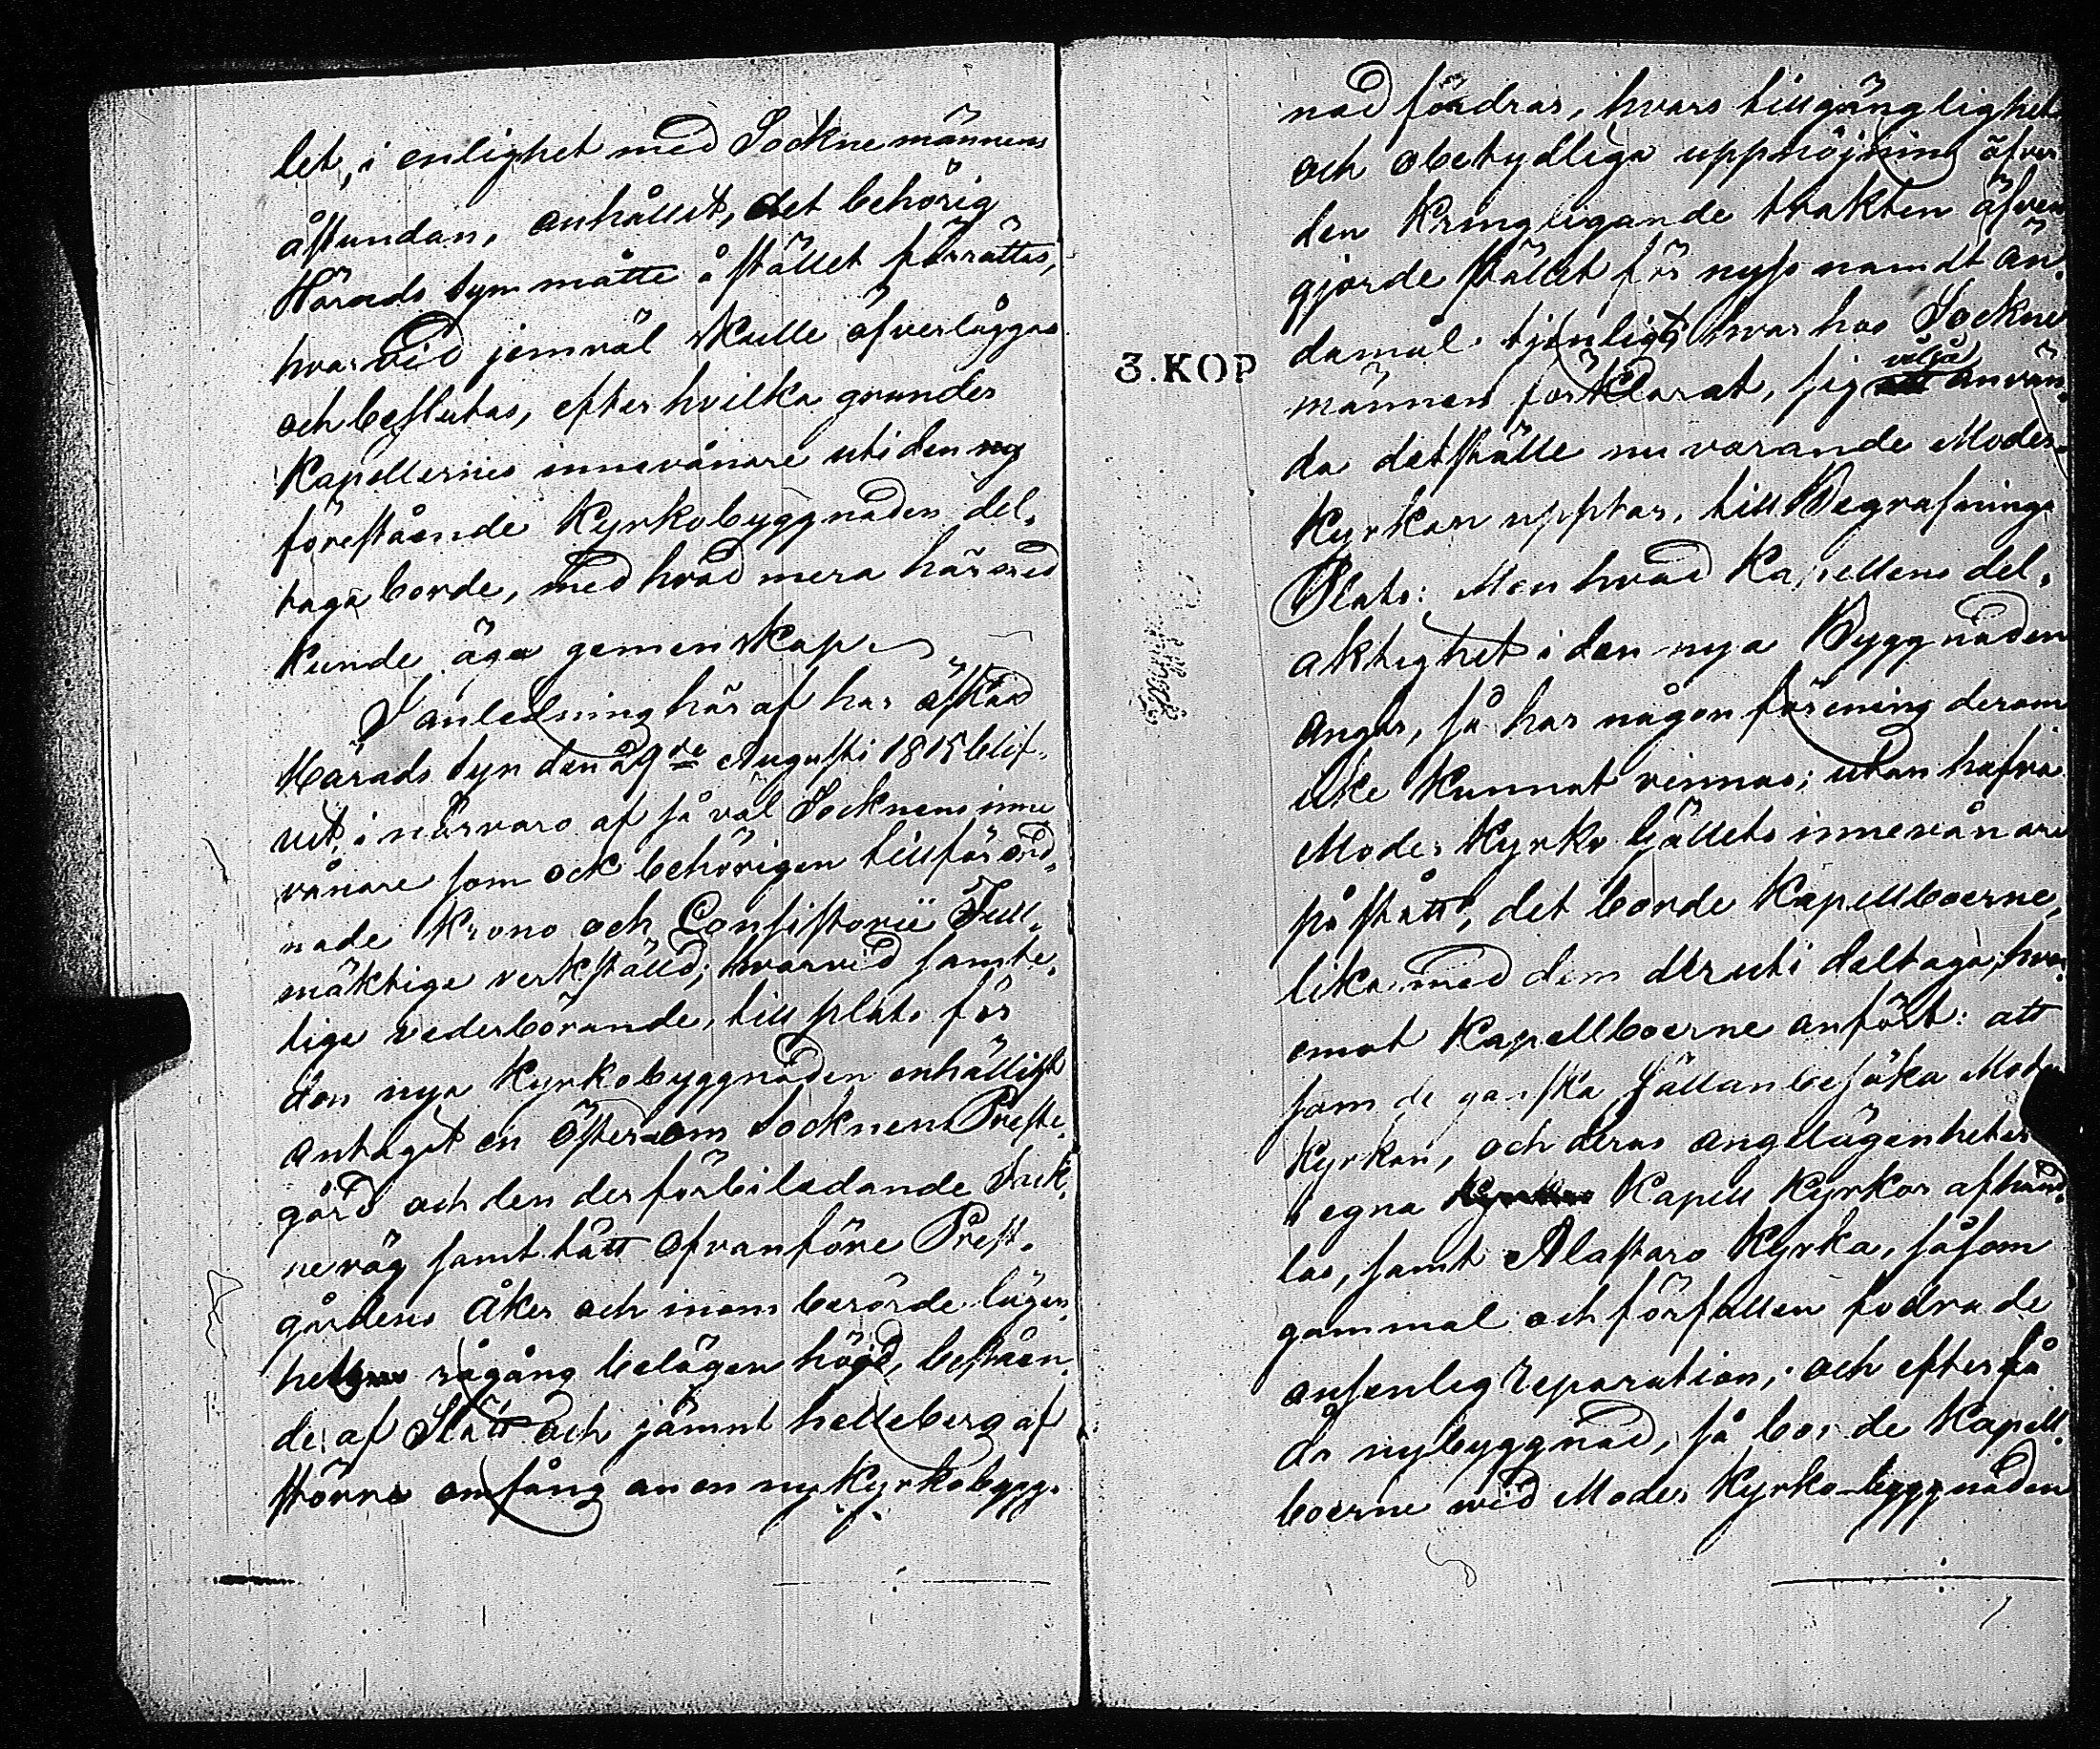 let, i enlighet med Sockne männens
åstundan, anhållit, det behörig
Härads Syn måtte å stället förrättas,
hvarvid jemväl skulle öfverläggas
och beslutas, efter hvilka grunder
Kapellernes innevånare uti den ny
föreståande Kyrkobyggnaden del¬
taga borde, med hvad mera härmed
kunde äga gemenskap.
I anledning häraf har äskad
Härads Syn den 29de Augusti 1815 blif¬
vit, i närvaro af så väl Socknens inne
vånare som ock behörigen tillförord¬
nade Krono och Consistorii Full¬
mäktige verkställd; hvarvid samte¬
lige vederbörande, till plats för
den nya Kyrkobyggnaden enhälligt
antagit en Öster om Socknens Preste¬
gård och den der förbiledande Sock¬
neväg samt tätt ofvanföre Prest¬
gårdens Åker och inom berörde lägen¬
hets rågång belägen höjd, beståen¬
de af Slätt och jämnt helleberg af
större omfång än en ny Kyrkobygg¬
nad fordras, hvars tillgänglighet
och obetydliga upphöjning öfver
den kringligande trakten äfven
gjorde stället för nyss namdt än¬
damål tjenligt, hvarhos Sockne
3.KOP
männen förklarat, sig vilja använ¬
da det ställe nu varande Moder¬
Kyrkan upptar, till Begrafnings
Plats: Men hvad Kapellens del¬
aktighet i den nya Byggnaden
angår, så har någon förening derom
icke kunnat vinnas; utan hafva
Moder Kyrko Gjällets innevånare
påstått, det borde Kapellboerne,
lika med dem deruti deltaga, hvar¬
emot Kapellboerne anfört: att
som de ganska sällan besöka Moder
Kyrkan, och deras angelägenheter
i egna Kapell Kyrkor afhand¬
las, samt Alastaro Kyrka, såsom
gammal och förfallen fodrade
ansenlig reparation, och efter få
år nybyggnad, så bör de Kapell¬
boerne wid Moder Kyrko-byggnaden